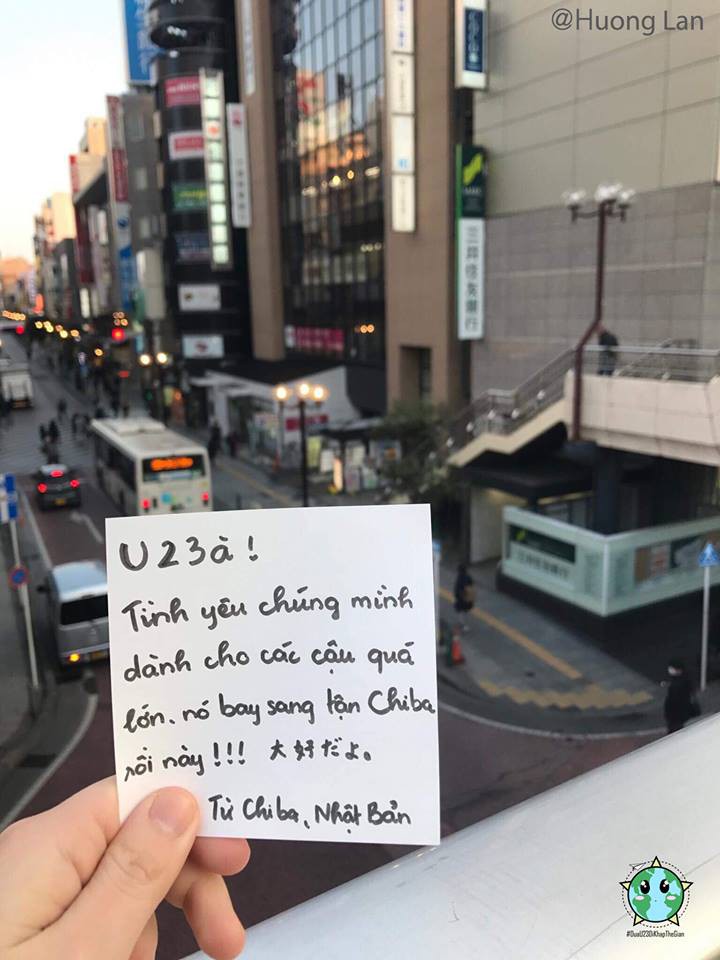 @Huong Lan
三井住友銀行
U23à!
Tình yêu chúng mình
dành cho các cậu quá
lớn. nó bay sang tận Chiba
rồi này!!! 大好だよ。
Từ Chiba, Nhật Bản
#DuaU23DiKhapTheGian